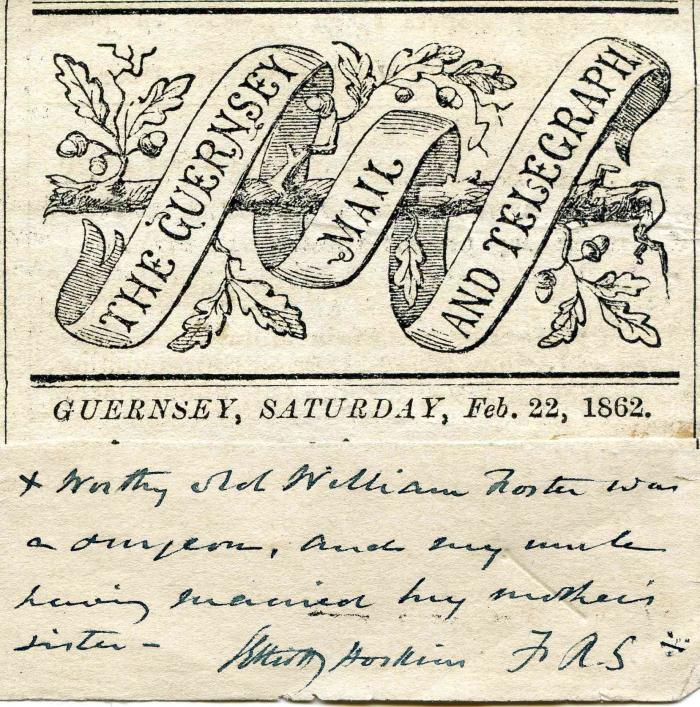 THE GUERNSEY
MAIL
AND TELEGRAPH
GUERNSEY, SATURDAY, Feb. 22, 1862.
+ Worthy old William Foster was
a surgeon, and my uncle
having married my mother's
sister –
S Elliott Hoskins F R S